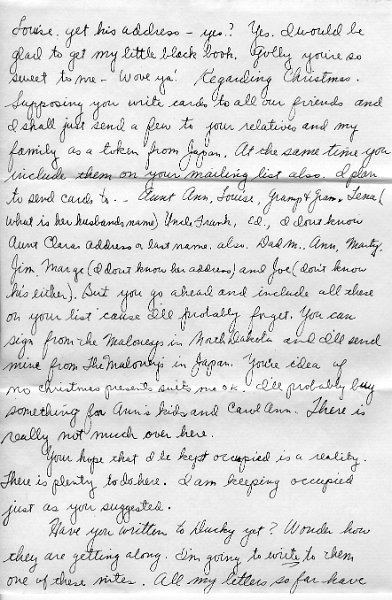 Louise. get his address – yes? Yes. I would be
glad to get my little black book. Golly you're so
sweet to me – 'Wove ya.' Regarding Christmas.
Supposing you write cards to all our friends and
I shall just send a few to your relatives and my
family as a token from Japan. At the same time you
include them on your mailing list also. I plan
to send cards to . . Aunt Ann, Louise, Gramp & Gram, Lena (
what is her husbands name) Uncle Frank, Ed., I dont know
Aunt Claras address or last name, also. Dad M., Ann, Marty,
Jim, Marge (I dont know her address) and Joe (don't know
his either). But you go ahead and include all these
on your list 'cause I'll probably forget. You can
sign from the Maloneys in North Dakota and I'll send
mine from The Maloneys in Japan. You're idea of
no christmas presents suits me OK. I'll probably buy
something for Ann's kids and Carol Ann. There is
really not much over here.
Your hope that I be kept occupied is a reality.
There is plenty to do here. I am keeping occupied
just as you suggested.
Have you written to Ducky yet? Wonder how
they are getting along. I'm going to write to them
one of these nites. All my letters so far have